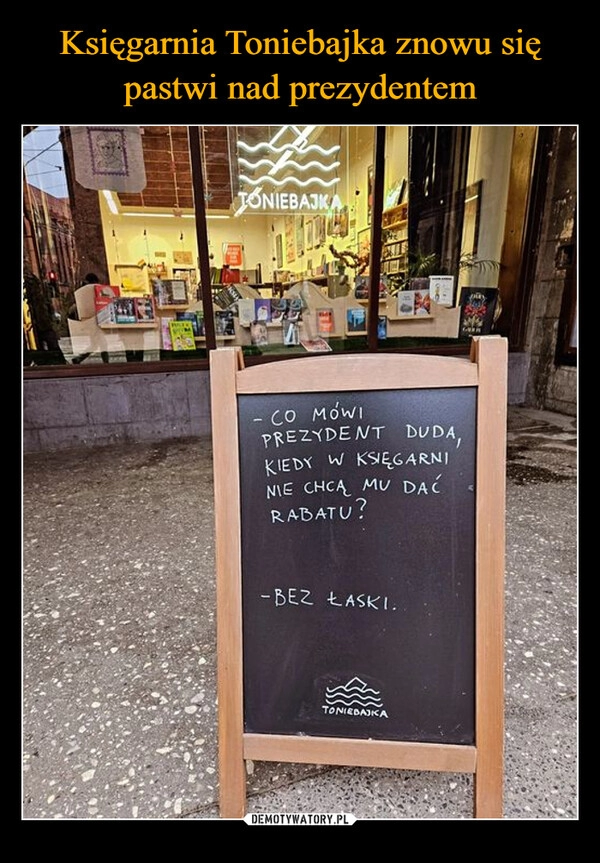 Księgarnia Toniebajka znowu się
pastwi nad prezydentem
TONIEBAJKA
- CO MÓWI
PREZYDENT DUDA,
KIEDY W KSIĘGARNI
NIE CHCĄ MU DAĆ
RABATU?
- BEZ ŁASKI.
TONIEBAJKA
DEMOTYWATORY.PL